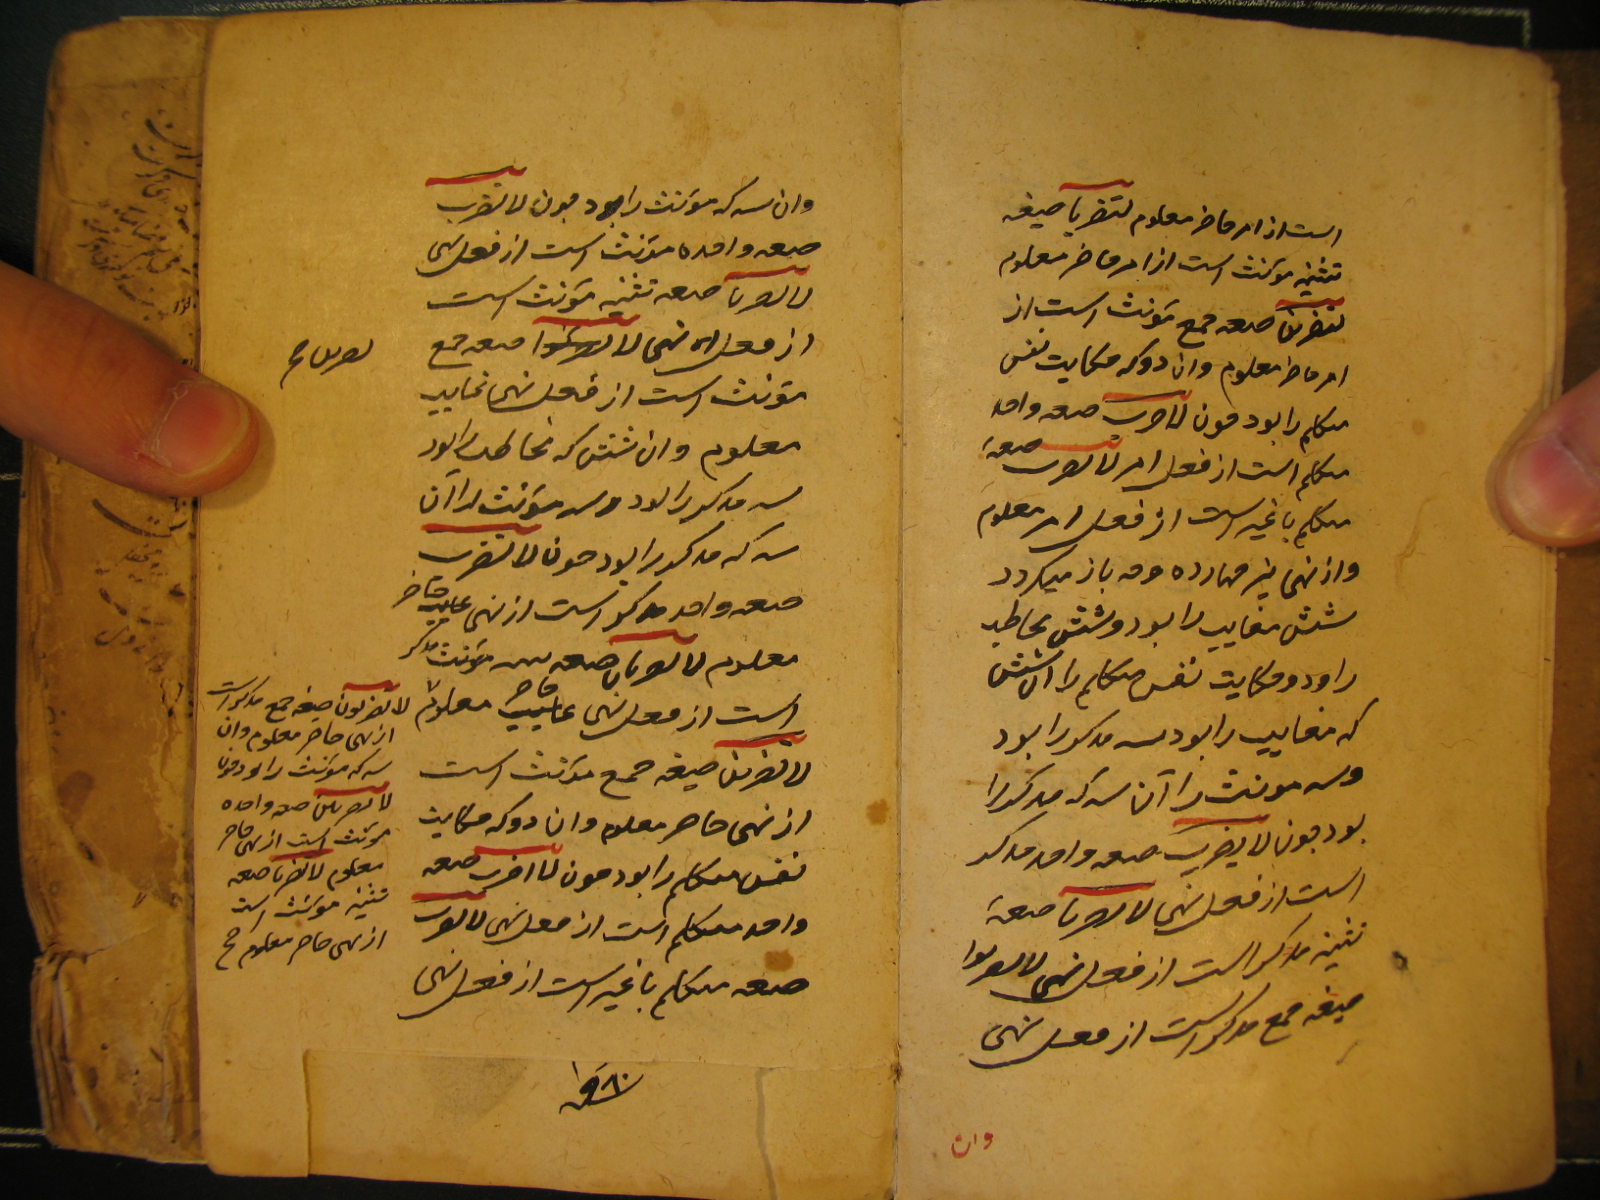 است از امر حاضر معلوم لتضربا صیغه
تثنیه مؤنث است از امر حاضر معلوم
لتضربن صیغه جمع مؤنث است از
امر حاضر معلوم وان دو که حکایت نفس
متکلم را بود چون لاضرب صیغه واحد
متکلم است از فعل امر لنضرب صیغهٔ
متکلم با غیر است از فعل امر معلوم
واز نهی نیز چهارده وجه باز میگردد
شش مغایب را بود و شش مخاطب
را و دو حکایت نفس متکلم را آن شش
که مغایب را بود سه مذکر را بود
وسه مونث را آن سه که مذکر را
بود چون لا یضرب صیغه واحد مذکر
است از فعل نهی لا یضربا صیغهٔ
تثنیه مذکر است از فعل نهی لا یضربوا
صیغه جمع مذکر است از فعل نهی
وان
وان سه که مؤنث را بود چون لا تضرب
صیغه واحده مؤنث است از فعل نهی
لا تضربا صیغه تثنیه مؤنث است
از فعل نهی لا صیغه جمع
یضربن صح
مؤنث است از فعل نهی غایب
معلوم وان شش که مخاطب را بود
سه مذکر را بود وسه مؤنث را آن
سه که مذکر را بود چون لا تضرب
صیغه واحد مذکر است از نهی حاضر
معلوم لا تضربا صیغه تثنیه مذکر
است از فعل نهی حاضر معلوم
لا تضربن صیغه جمع مؤنث است
از نهی حاضر معلوم وان دو که حکایت
نفس متکلم را بود چون لا اضرب صیغه
واحد متکلم است از فعل نهی لا نضرب
صیغه متکلم با غیر است از فعل نهی
لا تضربون صیغه جمع مذکر است
از نهی حاضر معلوم وان
سه که مؤنث را بود چون
لا تضربین صیغه واحده
مؤنث است از نهی حاضر
معلوم لا تضربا صیغه
تثنیه مؤنث است
از نهی حاضر معلوم صح